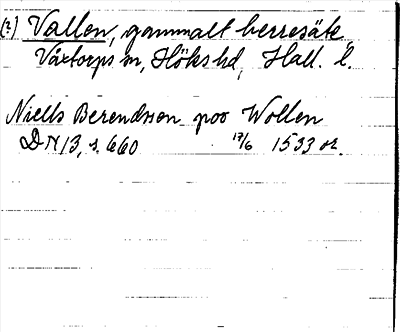 (?) Vallen, gammalt herresäte
Växtorps sn, Höks hd, Hall. l.
Niells Berendsøn poo Wollen
DN 13, s. 660 17/6 1533 or.